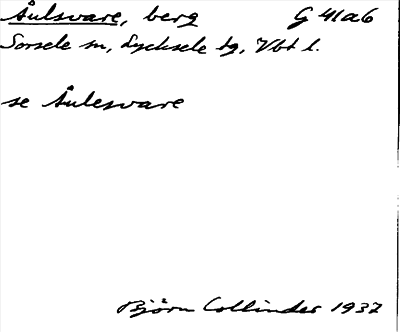 Åulsvare, berg G 41a6
Sorsele sn, Lycksele tg, Vbt l.
se Åulesvare
Björn Collinder 1937